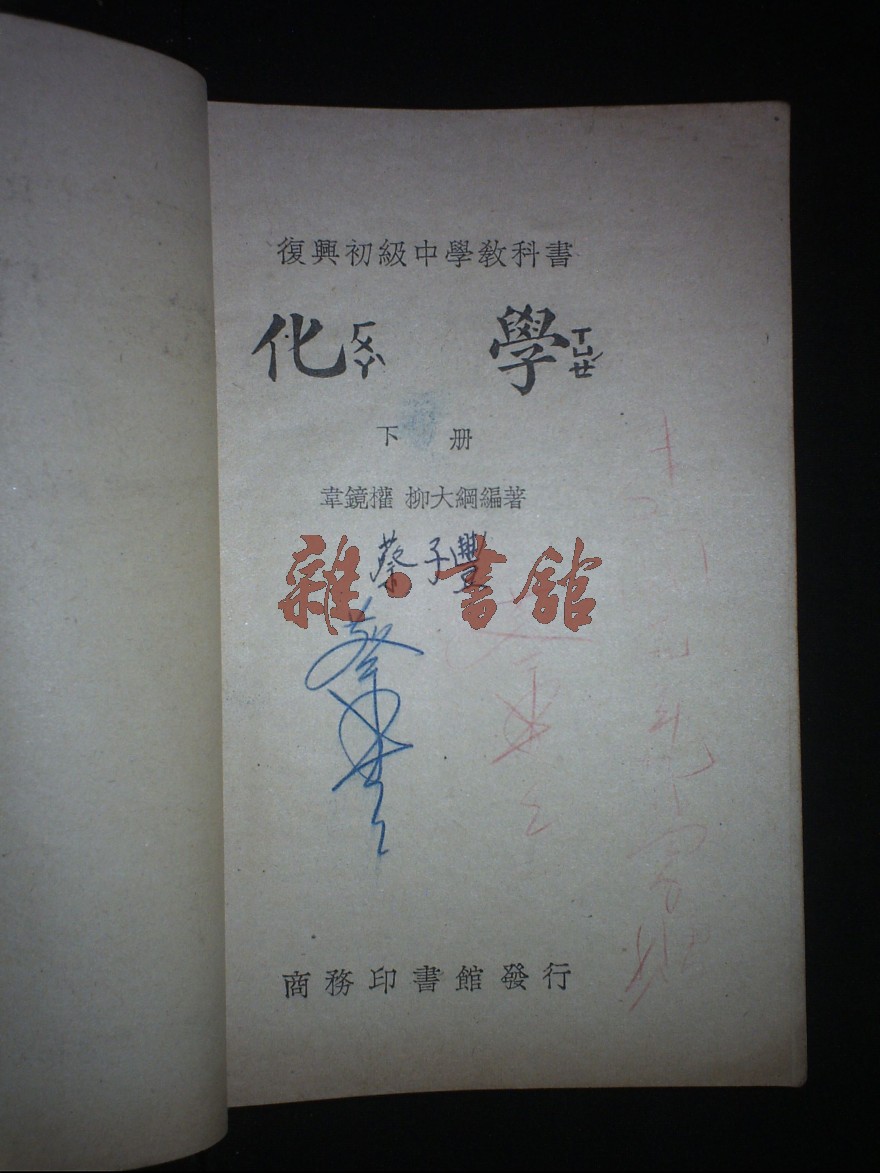 復興初級中學教科書
化ㄏㄨㄚˋ 學ㄒㄩㄝˊ
下册
韋鏡權 柳大綱編著
蔡子豐
雜·書館
商務印書館發行